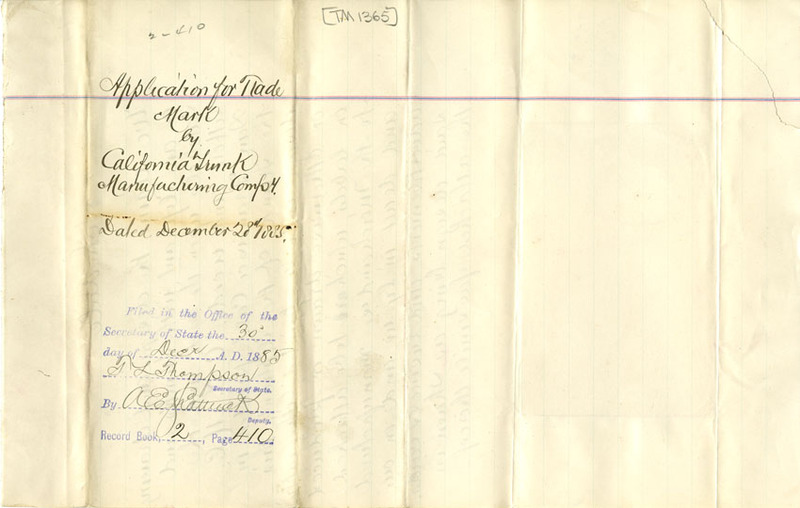 2-410
[TM 1365]
Application for Trade
Mark
by
California Trunk
Manufacturing Compy.
Dated December 28th 1885.
Filed in the Office of the
Secretary of State the 30
day of Decr A. D. 1885
T L Thompson
Secretary of State.
By A E
Deputy.
Record Book, 2, Page 410